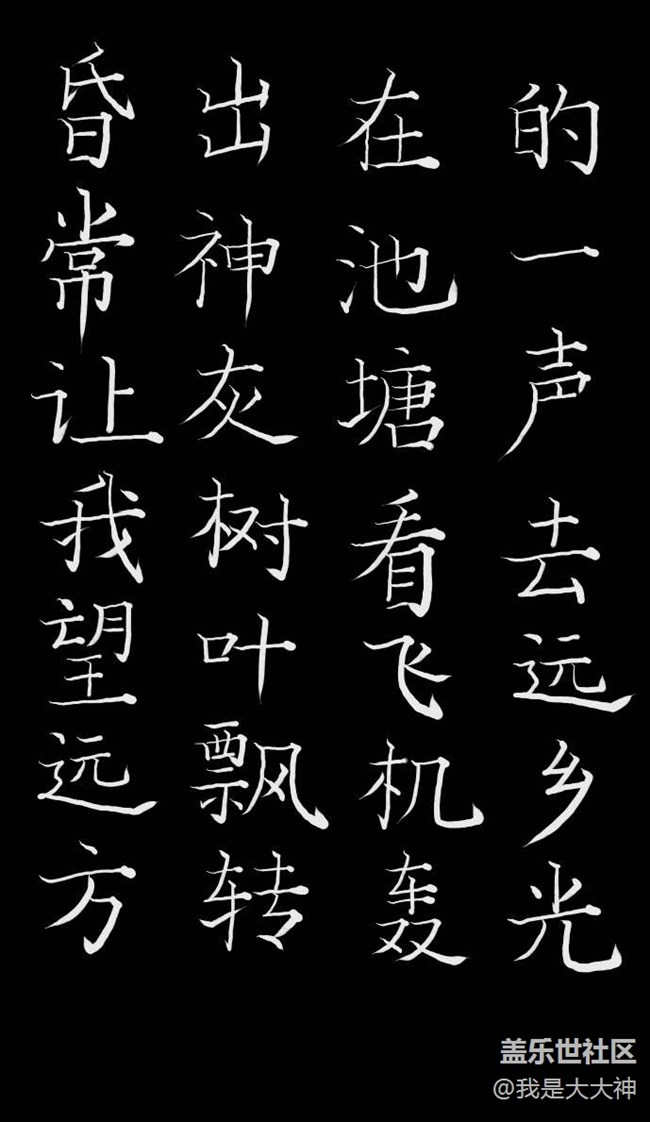 昏常让我望远方
出神灰树叶飘转
在池塘看飞机轰
的一声去远乡光
盖乐世社区
@我是大大神